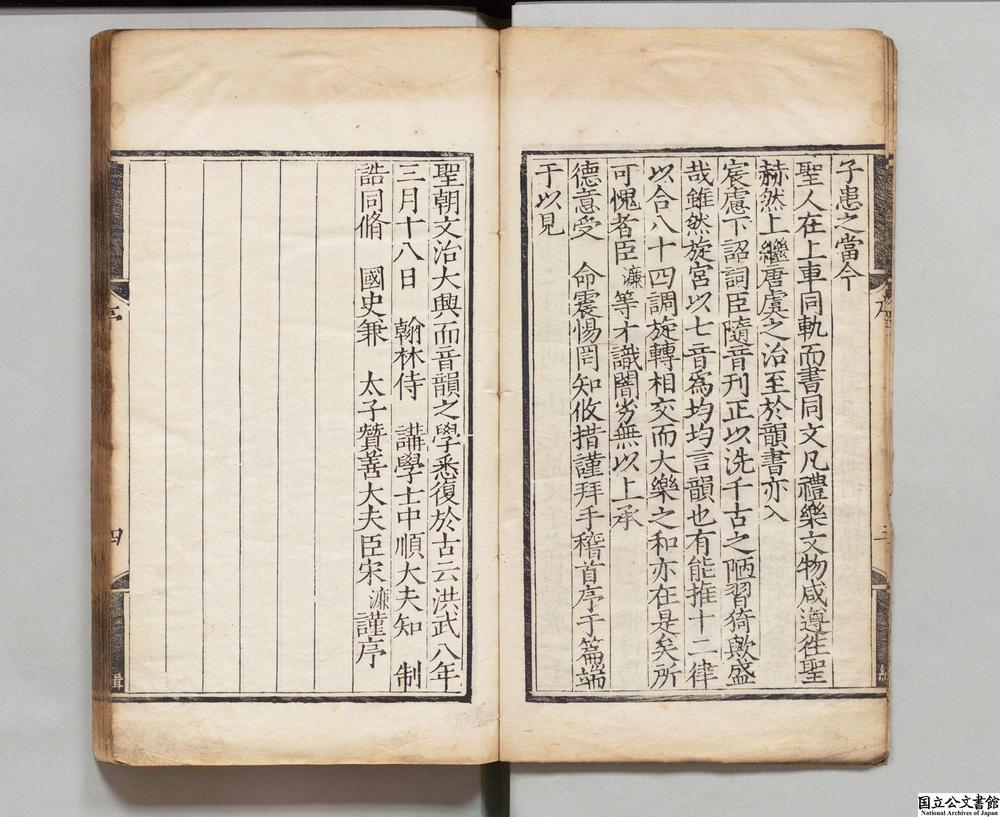 子患之當今
聖人在上車同軌而書同文凡禮樂文物咸遵徃聖
赫然上繼唐虞之治至於韻書亦入
宸慮下詔詞臣隨音刊正以洗千古之陋習猗歟盛
哉雖然旋宮以七音爲均均言韻也有能推十二律
以合八十四調旋轉相交而大樂之和亦在是矣所
可愧者臣濂等才識闇劣無以上承
德意受 命震惕罔知攸措謹拜手稽首序于篇端
于以見
聖朝文治大興而音韻之學悉復於古云洪武八年
三月十八日 翰林侍 講學士中順大夫知 制
誥同脩 國史兼 太子贊善大夫臣宋濂謹序
四
国立公文書館
National Archives of Japan